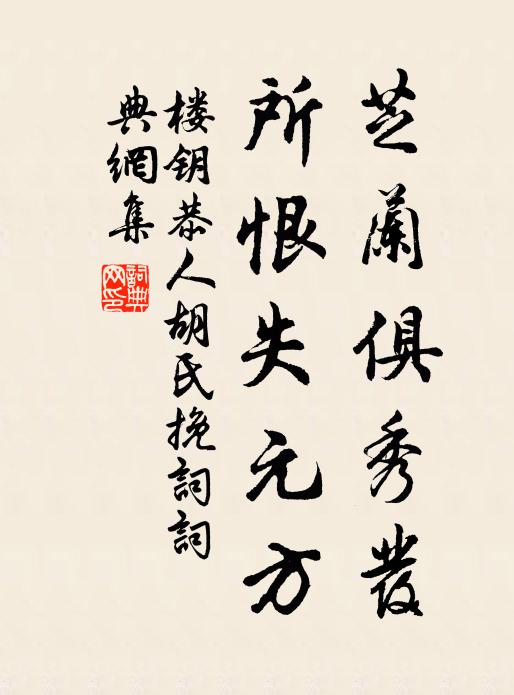 芝蘭俱秀發
所恨失元方
楼钥恭人胡氏挽詞詞
典網集
詞典网印